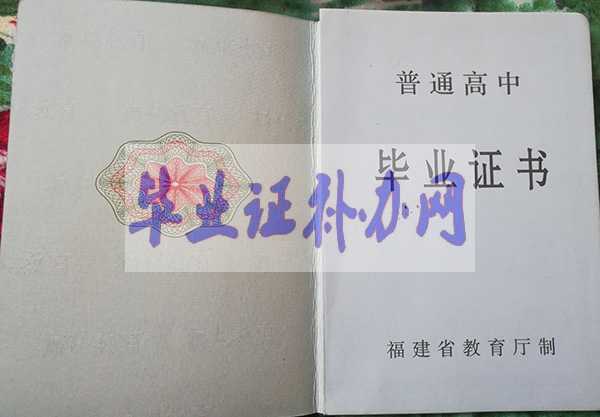 普通高中
毕业证书
毕业证补办网
福建省教育厅制